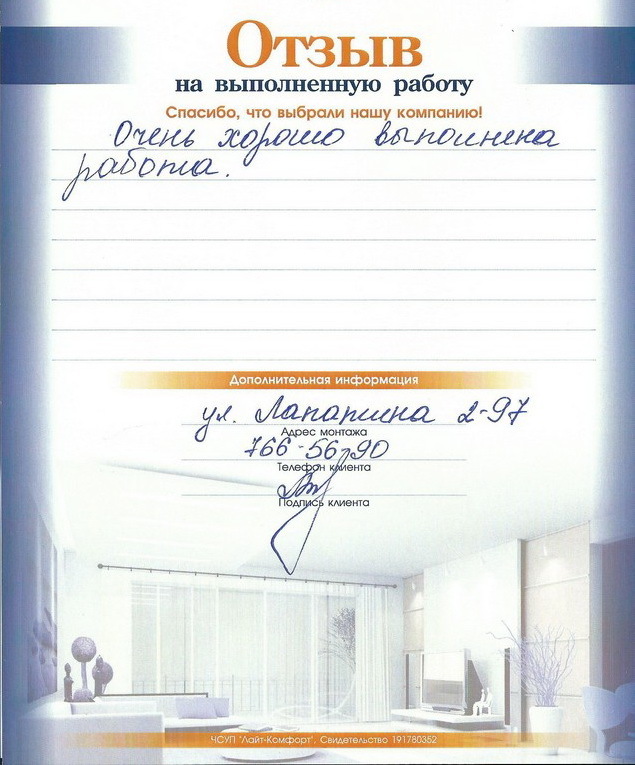 Отзыв
на выполненную работу
Спасибо, что выбрали нашу компанию!
Очень хорошо выполнена
работа.
Дополнительная информация
ул. Лапатина 2-97
Адрес монтажа
766-56-90
Телефон клиента
Подпись клиента
ЧСУП "Лайт-Комфорт". Свидетельство 191780352